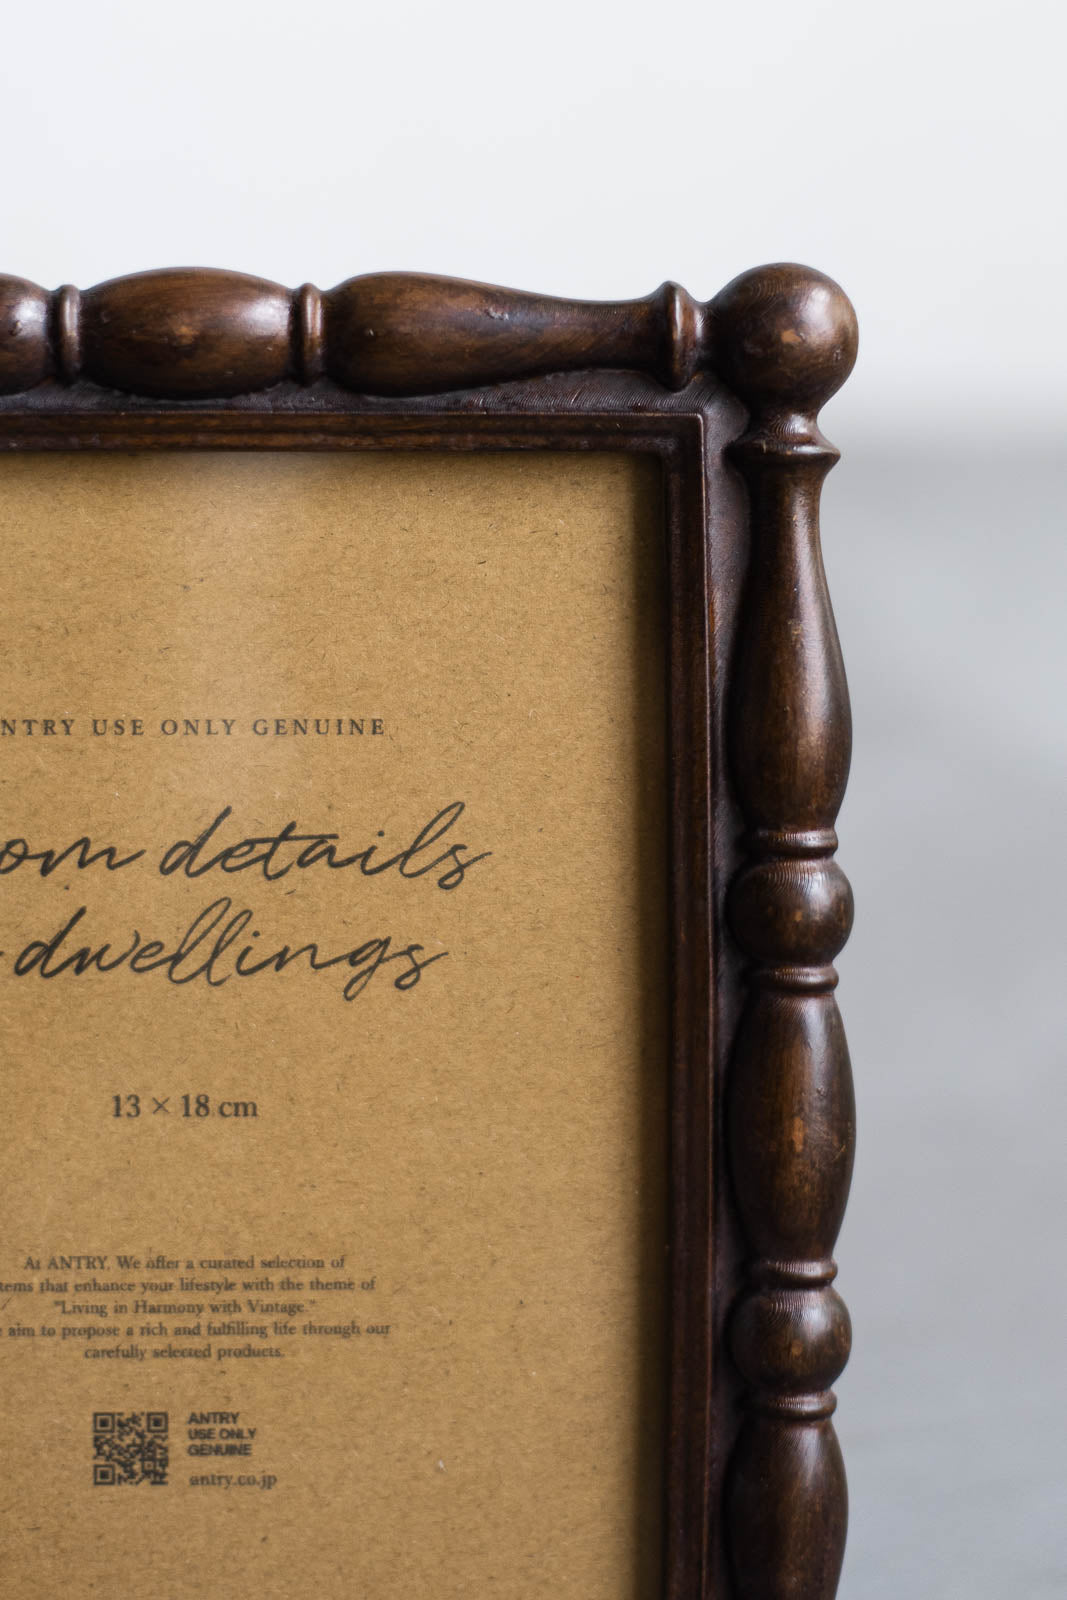 NTRY USE ONLY GENUINE
om details
dwellings
13 × 18 cm
At ANTRY, We offer a curated selection of
tems that enhance your lifestyle with the theme of
"Living in Harmony with Vintage."
aim to propose a rich and fulfilling life through our
carefully selected products.
ANTRY
USE ONLY
GENUINE
antry.co.jp